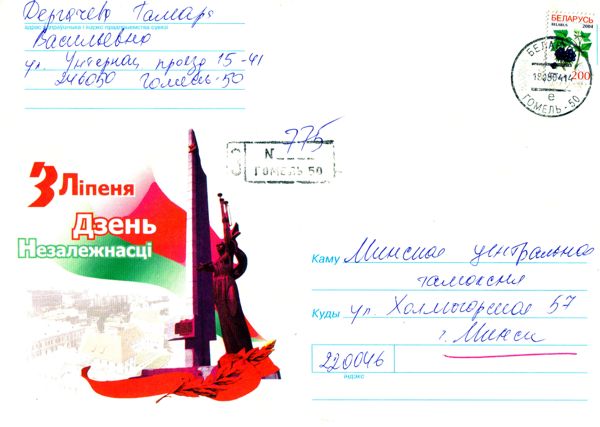 Дергачева Тамара
адрас адпраўшчыка і індэкс прадпрыемства сувязі
Васильевна
ул. Интернац проезд 15-41
246050 Гомель-50
БЕЛАРУСЬ
BELARUS 2004
200
ГОМЕЛЬ-50
е
775
N
ГОМЕЛЬ 50
З
3 Ліпеня
Дзень
Незалежнасці
Каму Минская центральная
таможня
Куды ул. Холмогорская 57
г. Минск
220046
індэкс